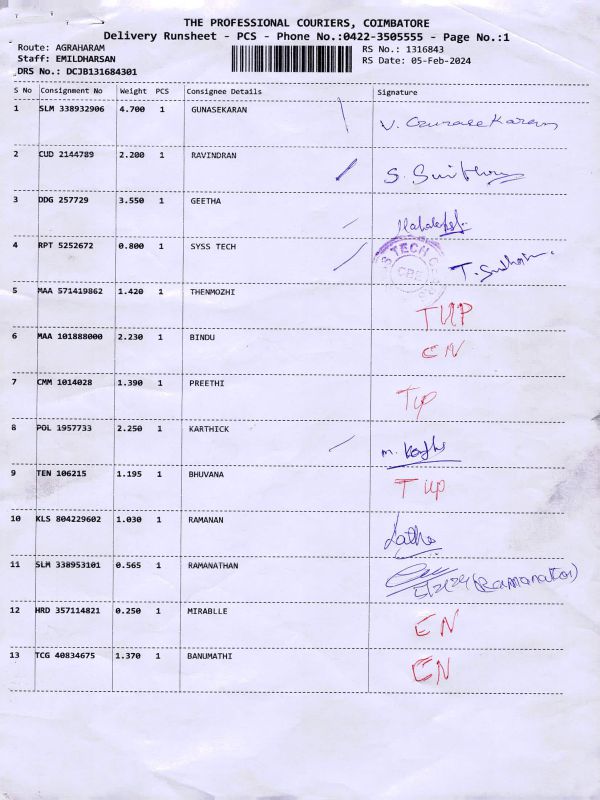 THE PROFESSIONAL COURIERS, COIMBATORE
Delivery Runsheet - PCS - Phone No.:0422-3505555 - Page No.:1
Route: AGRAHARAM RS No.: 1316843
Staff: EMILDHARSAN RS Date: 05-Feb-2024
DRS No.: DCJB131684301
S No Consignment No Weight PCS Consignee Details Signature
1 SLM 338932906 4.700 1 GUNASEKARAN V. Gunasekaran
2 CUD 2144789 2.200 1 RAVINDRAN S.
3 DDG 257729 3.550 1 GEETHA
4 RPT 5252672 0.800 1 SYSS TECH TECH CBE T.
5 MAA 571419862 1.420 1 THENMOZHI TUP
6 MAA 101888000 2.230 1 BINDU CN
7 CMM 1014028 1.390 1 PREETHI Tup
8 POL 1957733 2.250 1 KARTHICK m.
9 TEN 106215 1.195 1 BHUVANA T up
10 KLS 804229602 1.030 1 RAMANAN Latha
11 SLM 338953101 0.565 1 RAMANATHAN
12 HRD 357114821 0.250 1 MIRABLLE EN
13 TCG 40834675 1.370 1 BANUMATHI CN